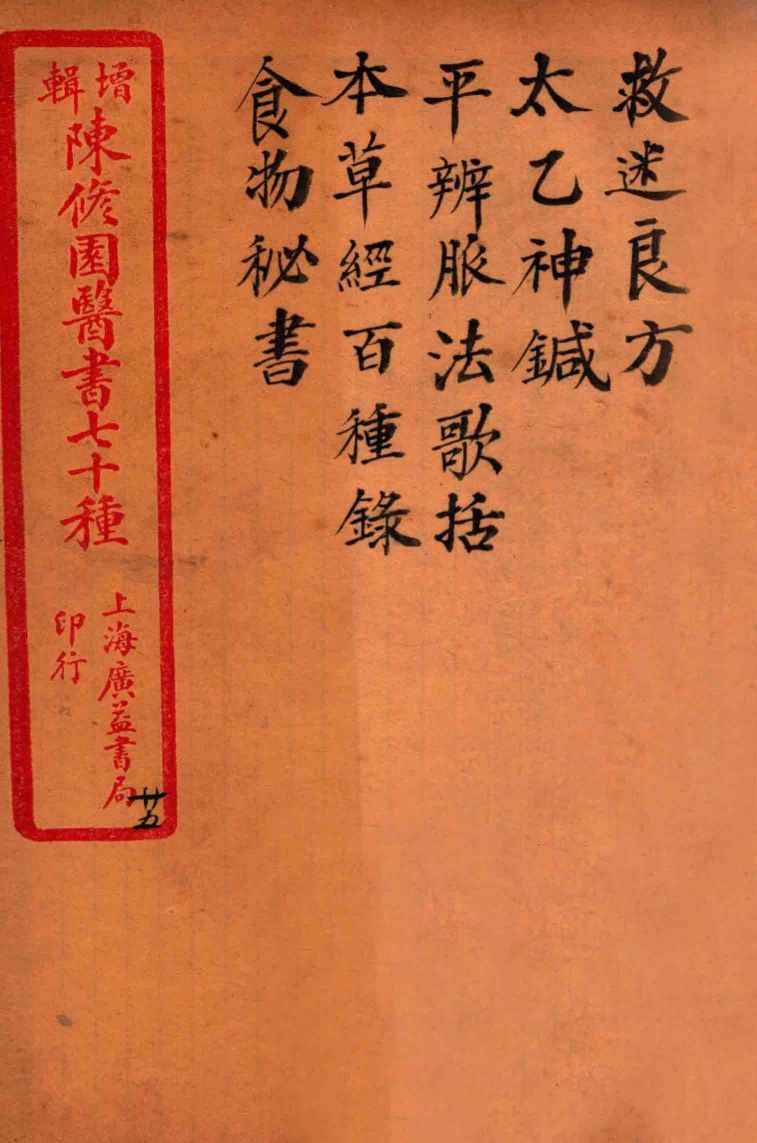 救迷良方
太乙神鍼
平辨脈法歌括
本草經百種錄
食物秘書
增輯
陳修園醫書七十種
上海廣益書局
印行
廿五